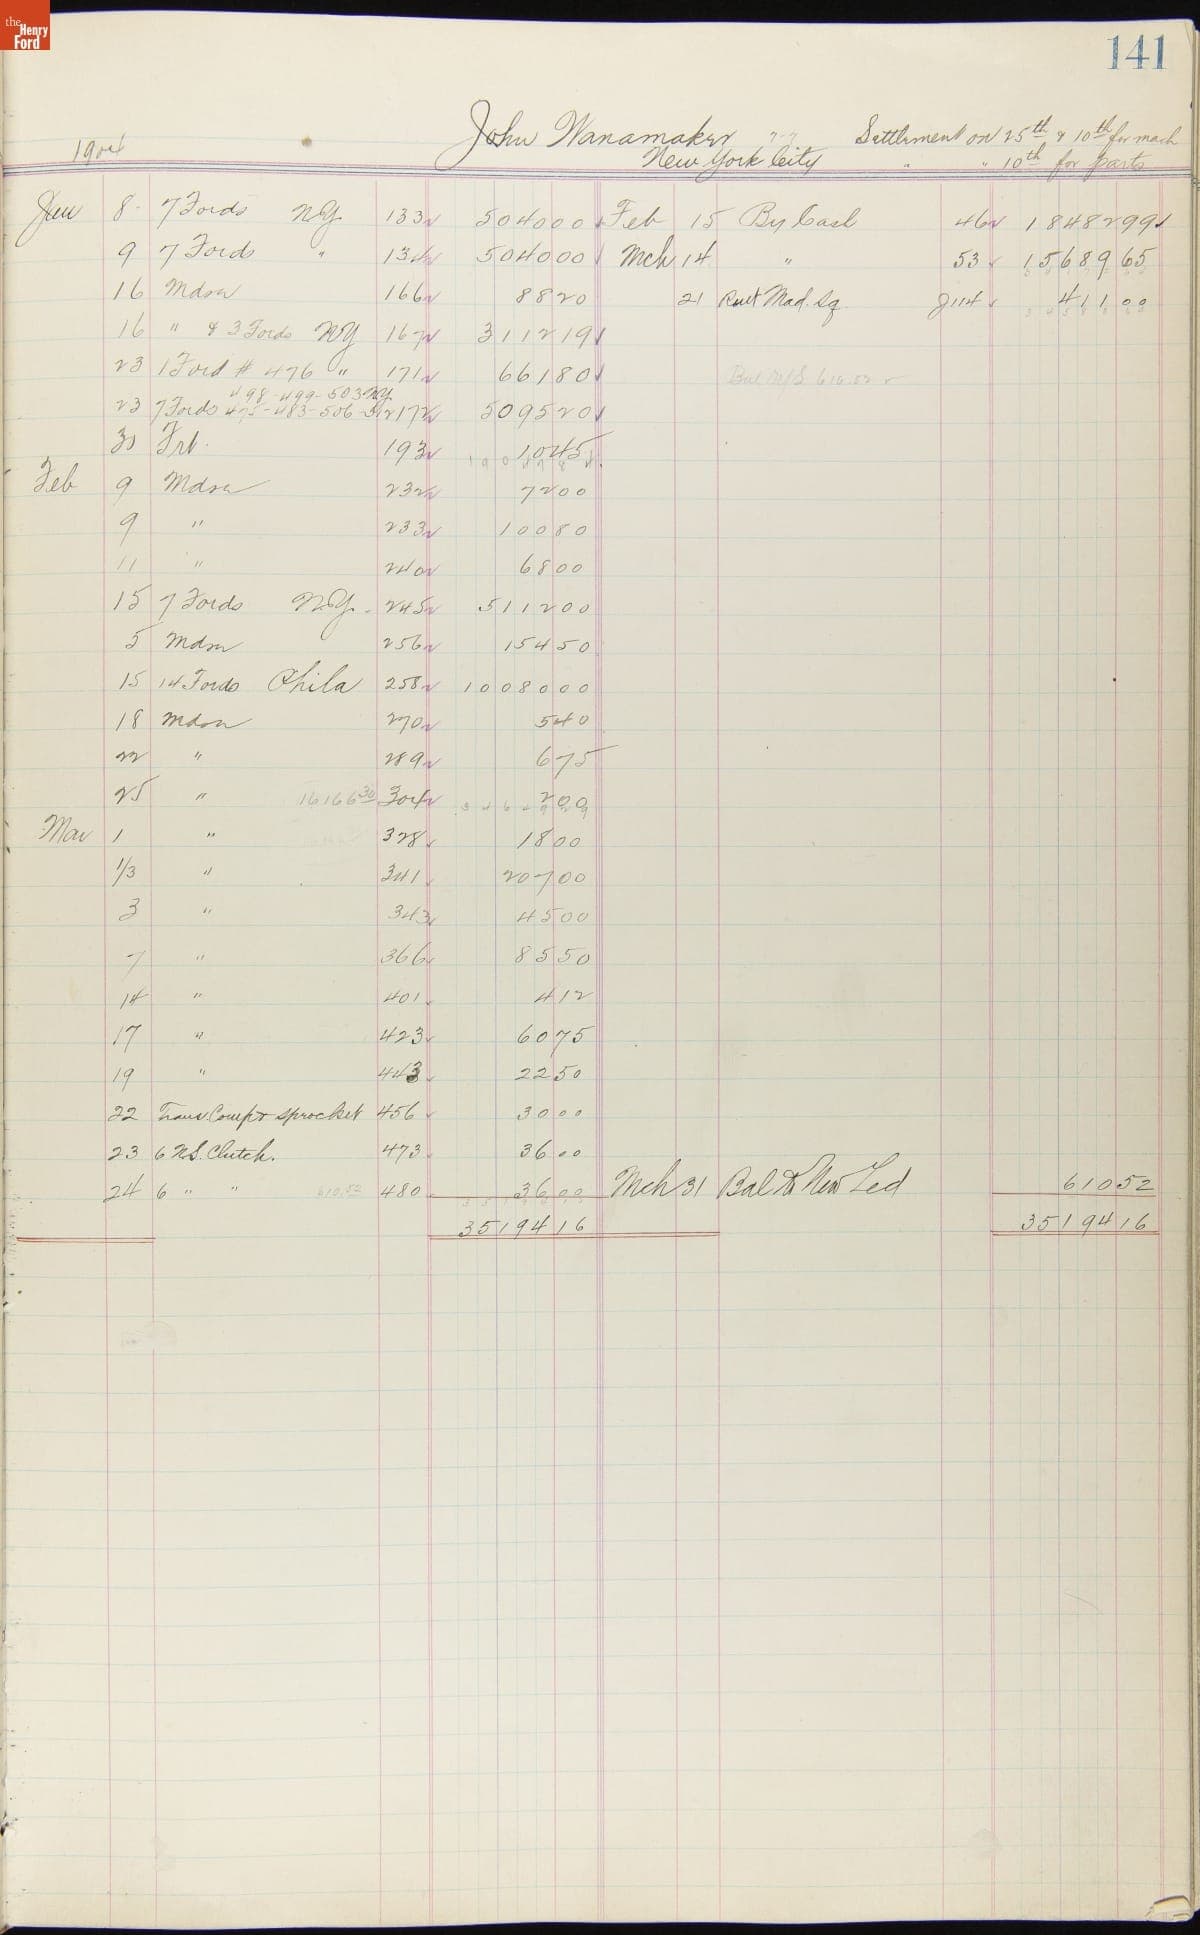 the Henry Ford
141
John Wanamaker 7-7 Settlement on 25th & 10th for mach
1904 New York City " " 10th for parts
Jan 8 7 Fords NY 133 504000 Feb 15 By Cash 46 1848299
9 7 Fords " 134 504000 Mch 14 " 53 1568965
16 Mdse 166 8820 21 Mad. Sq J114 41100
16 " & 3 Fords NY 167 311219
23 1 Ford # 476 " 171 66180 Bal 610.52
498-499-503 NY
23 7 Fords 475-483-506- 172 509520
30 Frt. 193 1045
1904784
Feb 9 Mdse 232 7200
9 " 233 10080
11 " 240 6800
15 7 Fords N.Y. 245 511200
5 Mdse 256 15450
15 14 Fords Phila 258 1008000
18 Mdse 270 540
22 " 289 675
25 " 16166 30 304 200
3464929
Mar 1 " 328 1800
1/3 " 341 20700
3 " 343 4500
7 " 366 8550
14 " 401 412
17 " 423 6075
19 " 443 2250
22 Trans. Comp & Sprocket 456 3000
23 6 N.S. Clutch. 473 3600
24 6 " " 610.52 480 3600 Mch 31 Bal to New Led 61052
3519416 3519416